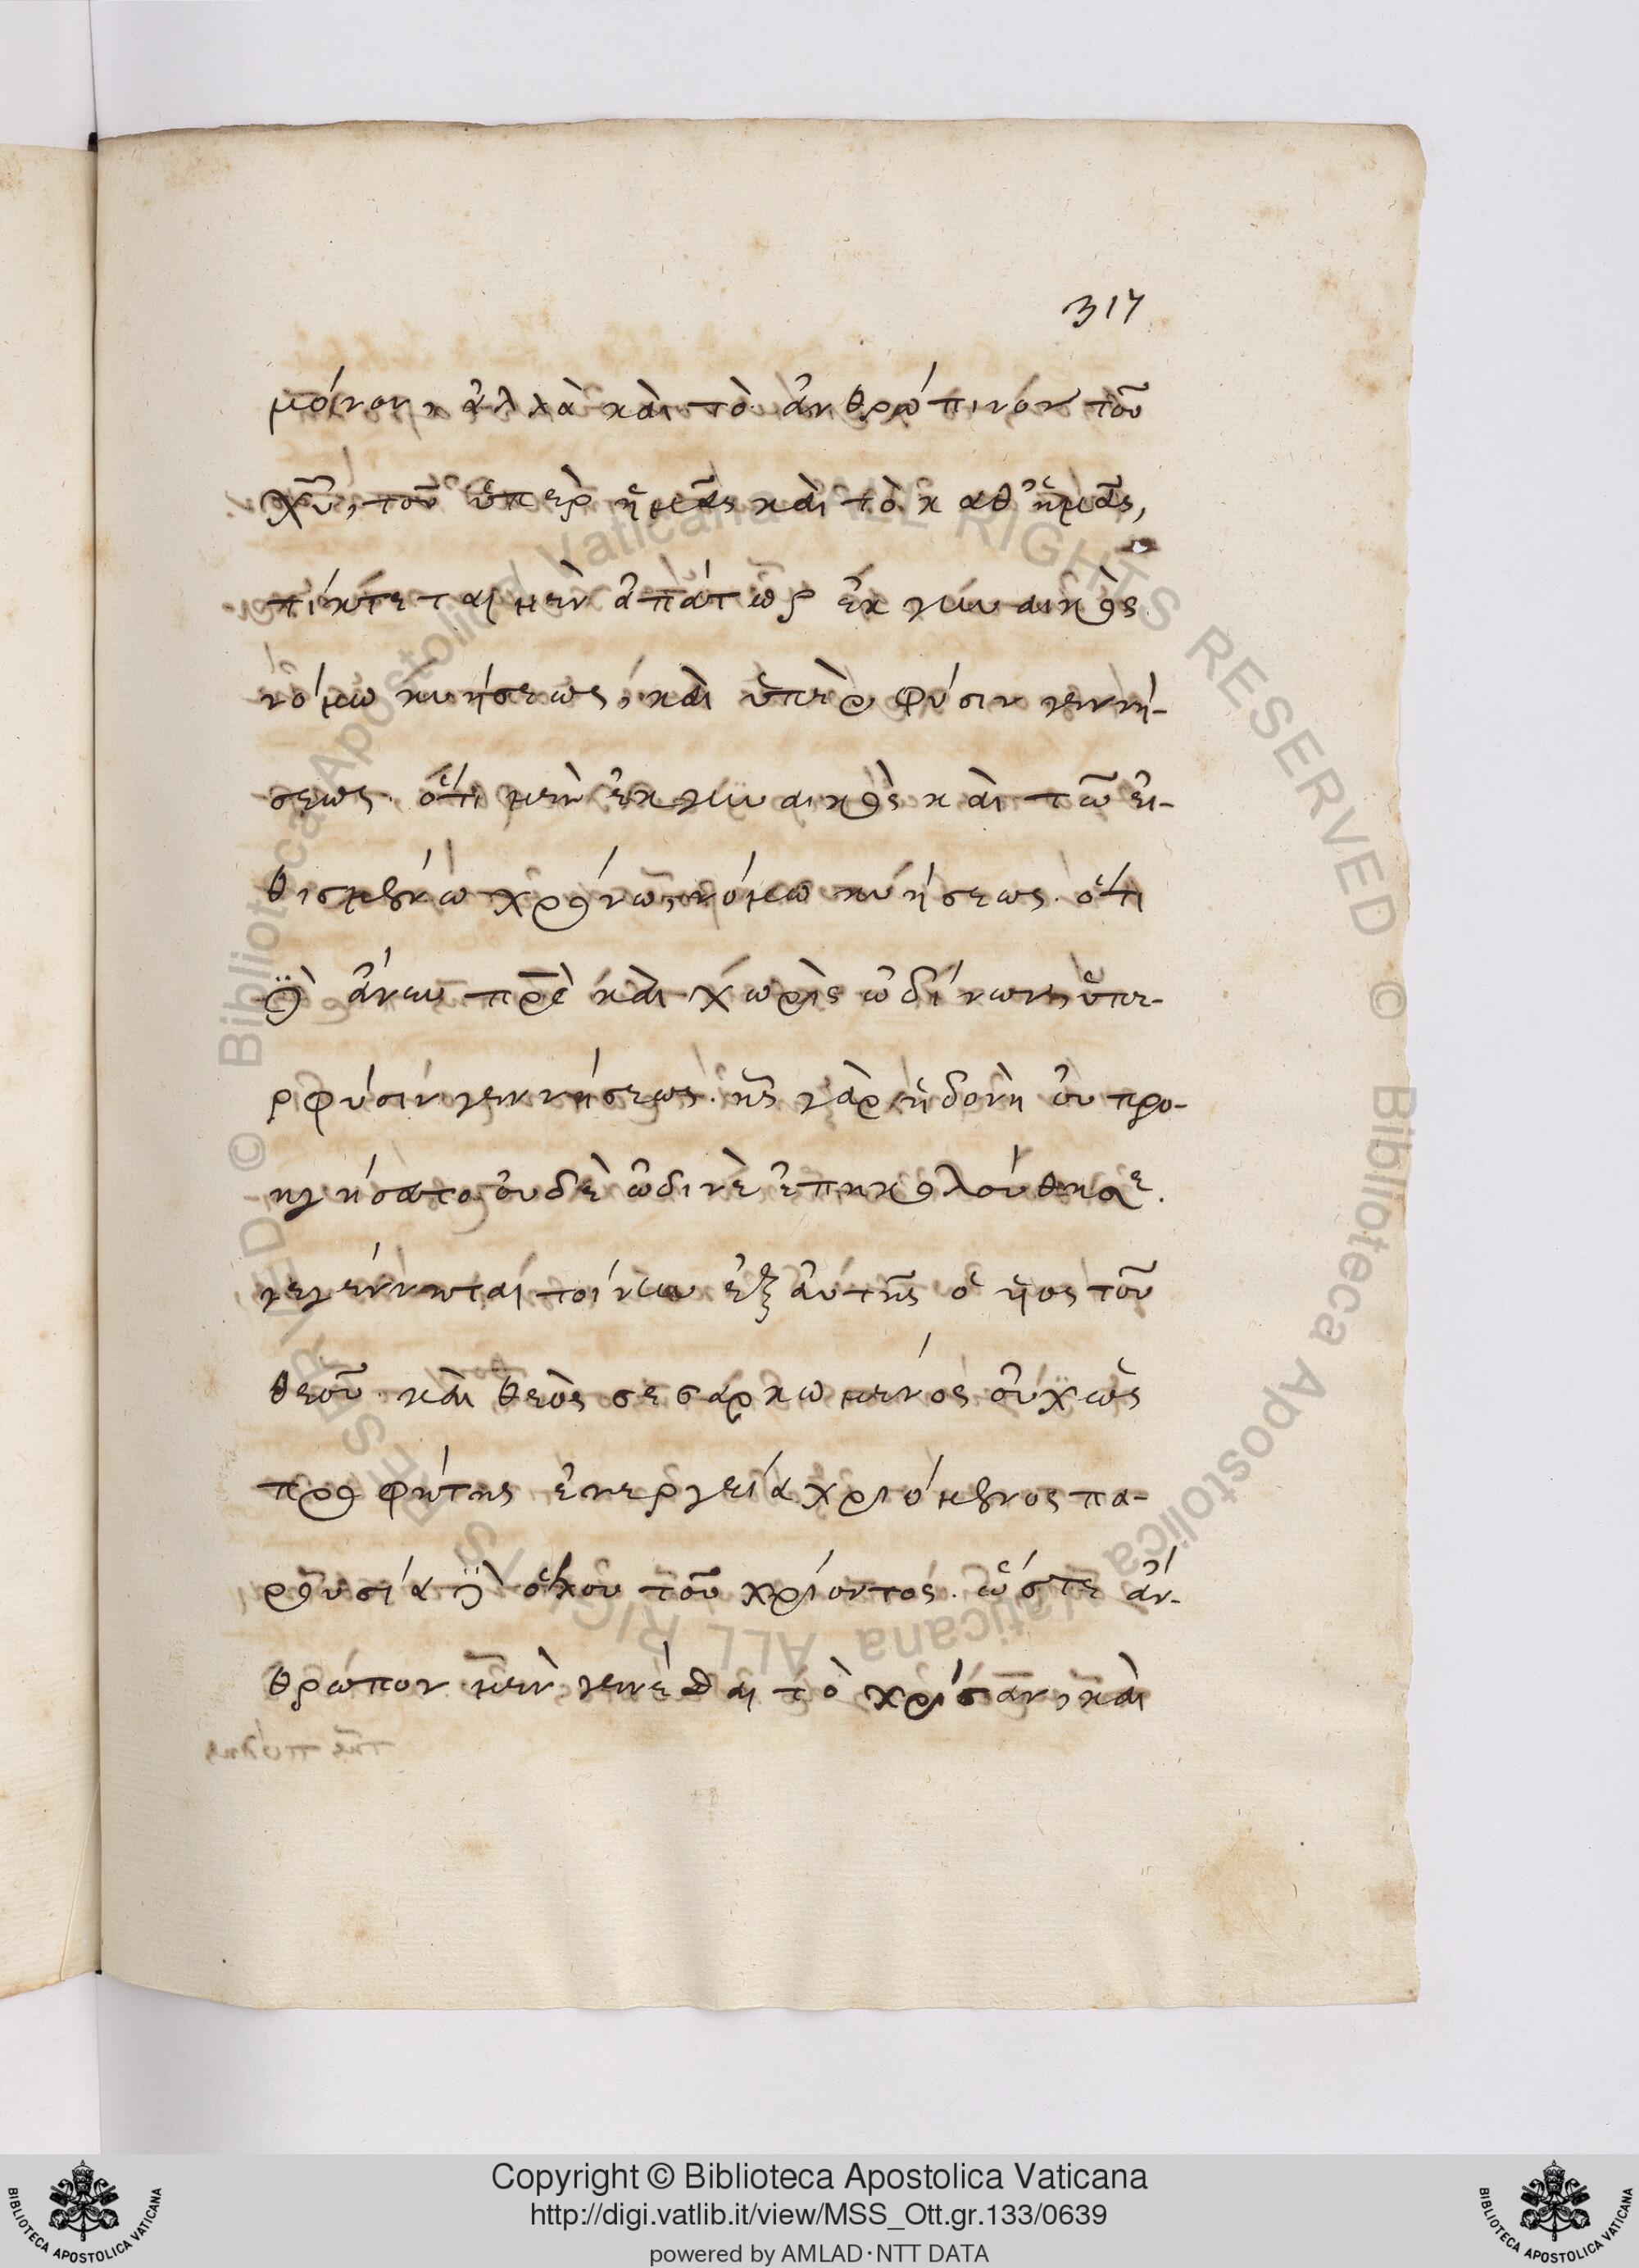 317
μόνον, ἀλλὰ καὶ τὸ ἀνθρώπινον τοῦ
χῦ, τοῦ ὑπὲρ ἡμᾶς καὶ τὸ καθ' ἡμᾶς,
τίκτεται μὲν ἀπάτωρ ἐκ γυναικὸς
νόμω κυήσεως, καὶ ὑπὲρ φύσιν γεννή-
σεως. ὅτι μὲν ἐκ γυναικὸς καὶ τῶ εἰ-
θισμένω χρόνω, νόμω κυήσεως. ὅτι
δὲ ἄνευ πρὸ καὶ χωρὶς ὠδίνων, ὑπε-
ρφύσιν γεννήσεως. ἧς γὰρ ἡδονὴ οὐ προ-
ηγήσατο οὐδὲ ὠδινὲ ἐπηκολούθησε.
γεγέννηται τοίνυν ἐξ αὐτῆς ὁ ὑος τοῦ
θεοῦ. καὶ θεὸς σεσαρκωμένος οὐχ ὡς
προφήτης ἐνεργεία χριόμενος πα-
ρουσία δὲ ὅλου τοῦ χρίοντος. ὥστε ἄν-
θρωπον μὲν γενέσθαι τὸ χρίσαν, καὶ
Copyright © Biblioteca Apostolica Vaticana
http://digi.vatlib.it/view/MSS_Ott.gr.133/0639
powered by AMLAD·NTT DATA
BIBLIOTECA APOSTOLICA VATICANA
BIBLIOTECA APOSTOLICA VATICANA
© Biblioteca Apostolica Vaticana ALL RIGHTS RESERVED © Biblioteca Apostolica Vaticana ALL RIGHTS RESERVED